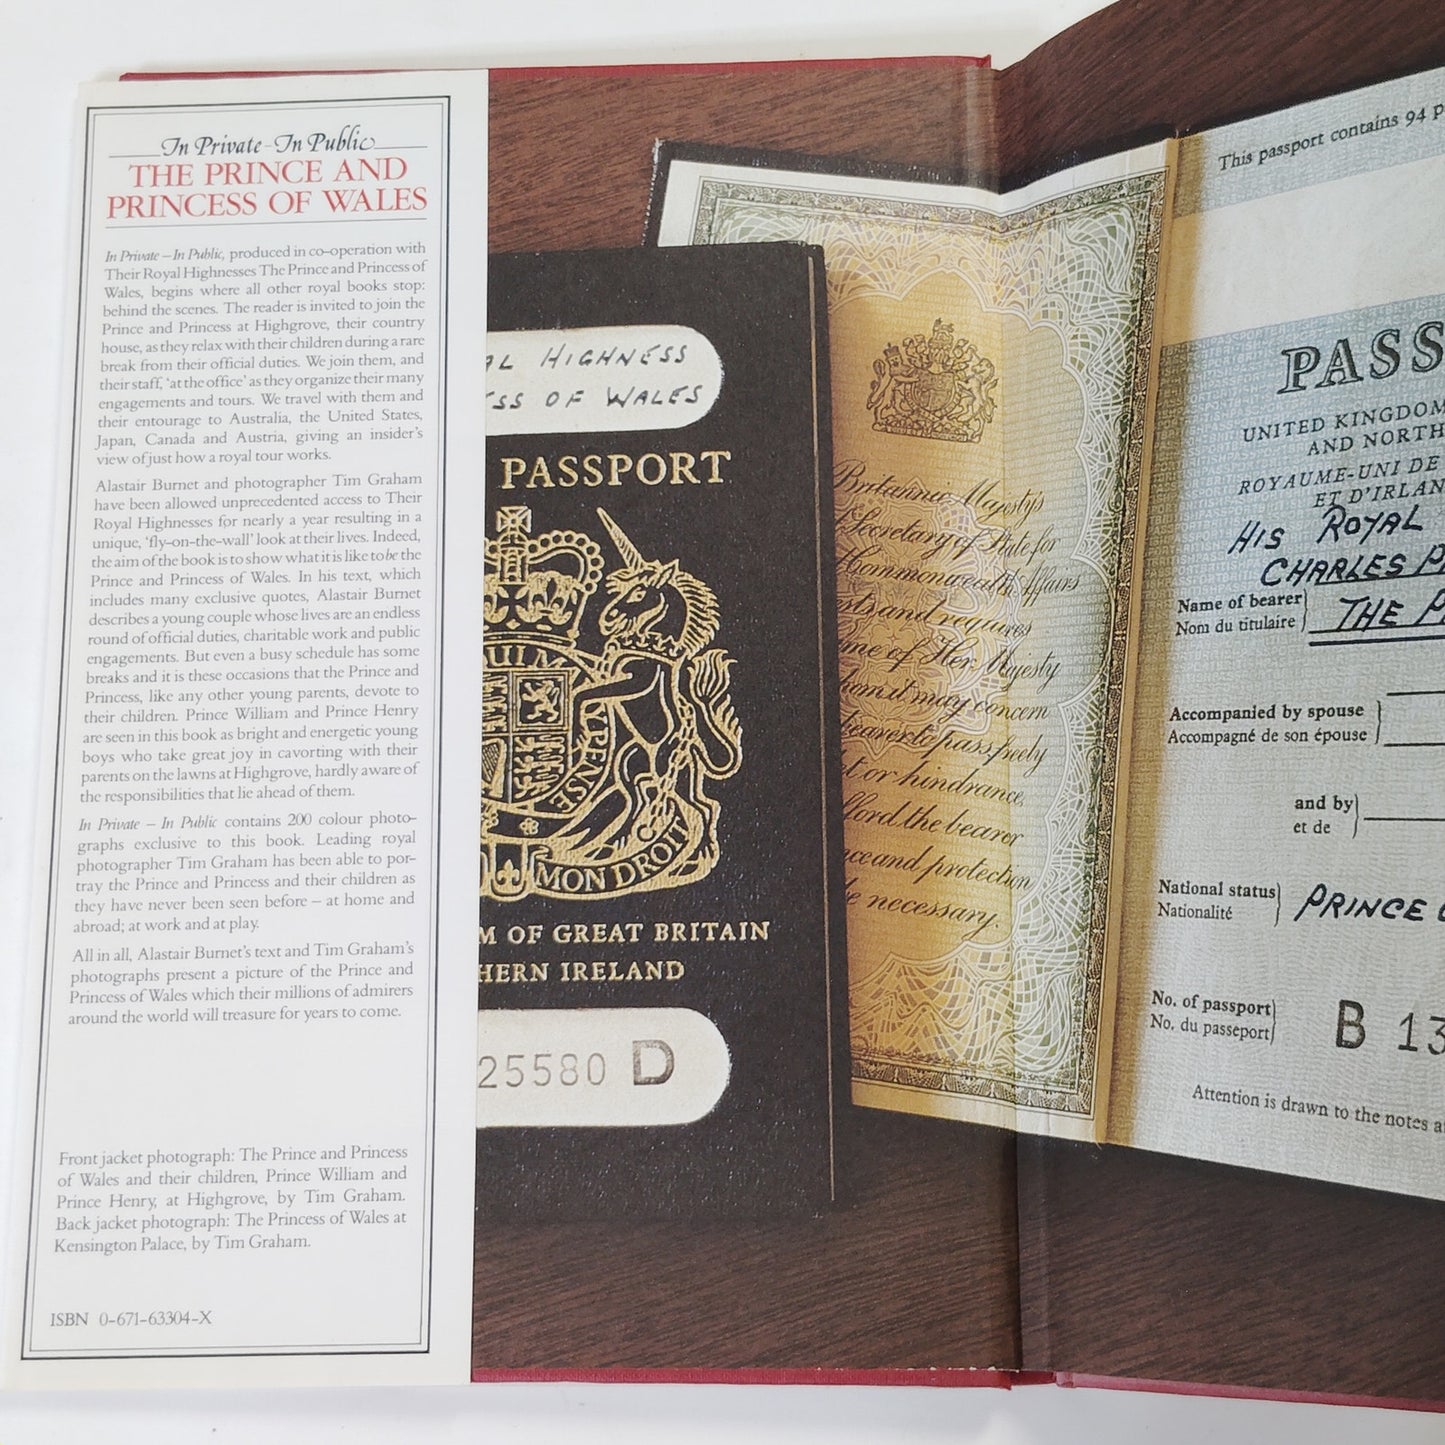 In Private - In Public
THE PRINCE AND
PRINCESS OF WALES
In Private – In Public, produced in co-operation with
Their Royal Highnesses The Prince and Princess of
Wales, begins where all other royal books stop:
behind the scenes. The reader is invited to join the
Prince and Princess at Highgrove, their country
house, as they relax with their children during a rare
break from their official duties. We join them, and
their staff, 'at the office' as they organize their many
engagements and tours. We travel with them and
their entourage to Australia, the United States,
Japan, Canada and Austria, giving an insider's
view of just how a royal tour works.
Alastair Burnet and photographer Tim Graham
have been allowed unprecedented access to Their
Royal Highnesses for nearly a year resulting in a
unique, 'fly-on-the-wall' look at their lives. Indeed,
the aim of the book is to show what it is like to be the
Prince and Princess of Wales. In his text, which
includes many exclusive quotes, Alastair Burnet
describes a young couple whose lives are an endless
round of official duties, charitable work and public
engagements. But even a busy schedule has some
breaks and it is these occasions that the Prince and
Princess, like any other young parents, devote to
their children. Prince William and Prince Henry
are seen in this book as bright and energetic young
boys who take great joy in cavorting with their
parents on the lawns at Highgrove, hardly aware of
the responsibilities that lie ahead of them.
In Private – In Public contains 200 colour photo-
graphs exclusive to this book. Leading royal
photographer Tim Graham has been able to por-
tray the Prince and Princess and their children as
they have never been seen before – at home and
abroad; at work and at play.
All in all, Alastair Burnet's text and Tim Graham's
photographs present a picture of the Prince and
Princess of Wales which their millions of admirers
around the world will treasure for years to come.
Front jacket photograph: The Prince and Princess
of Wales and their children, Prince William and
Prince Henry, at Highgrove, by Tim Graham.
Back jacket photograph: The Princess of Wales at
Kensington Palace, by Tim Graham.
ISBN 0-671-63304-X
AL HIGHNESS
ESS OF WALES
PASSPORT
QUI M
PENSE
MON DROIT
M OF GREAT BRITAIN
HERN IRELAND
25580 D
Britannic Majesty's
Secretary of State for
Commonwealth Affairs
sts and requires
me of Her Majesty
hom it may concern
bearer to pass freely
t or hindrance,
fford the bearer
nce and protection
be necessary.
This passport contains 94 p
PASS
UNITED KINGDOM
AND NORTH
ROYAUME-UNI DE
ET D'IRLAN
HIS ROYAL
CHARLES P
Name of bearer THE P
Nom du titulaire
Accompanied by spouse
Accompagné de son épouse
and by
et de
National status PRINCE
Nationalité
No. of passport B 13
No. du passeport
Attention is drawn to the notes a